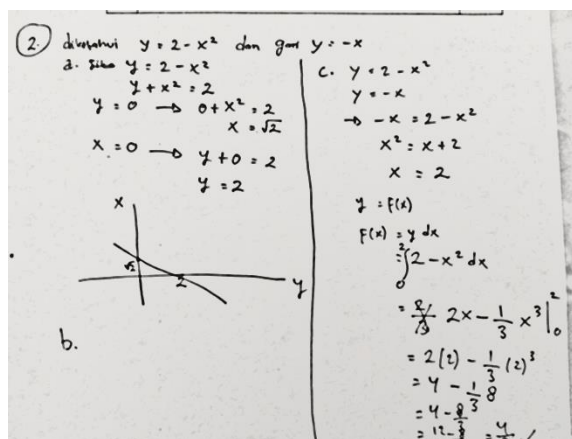 2. diketahui y = 2 - x² dan garis y = -x
a. Jika y = 2 - x²
y + x² = 2
y = 0 → 0 + x² = 2
x = √2
x = 0 → y + 0 = 2
y = 2
x
√2
2
y
b.
c. y = 2 - x²
y = -x
→ -x = 2 - x²
x² = x + 2
x = 2
y = f(x)
F(x) = y dx
= ∫₀² 2 - x² dx
= 2x - 1/3 x³ |₀²
= 2(2) - 1/3 (2)³
= 4 - 1/3 8
= 4 - 8/3
= 12 - 8/3 = 4/